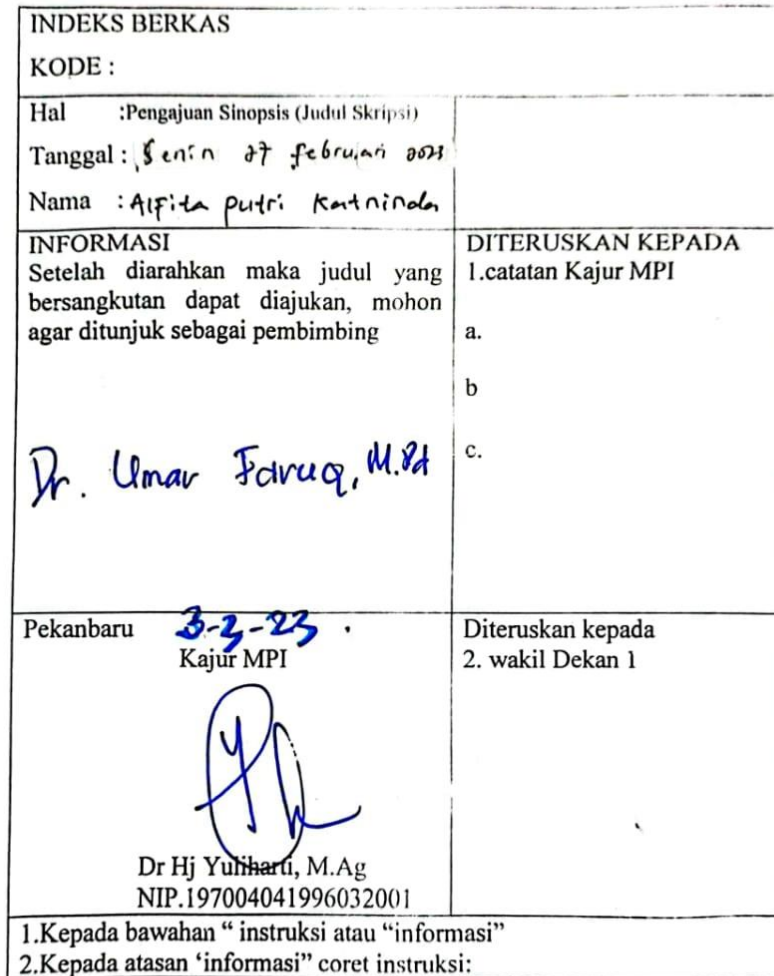 INDEKS BERKAS
KODE :
Hal :Pengajuan Sinopsis (Judul Skripsi)
Tanggal : Senin 27 februari 2023
Nama : Alfita putri Katninda
INFORMASI
Setelah diarahkan maka judul yang
bersangkutan dapat diajukan, mohon
agar ditunjuk sebagai pembimbing
Dr. Umar Faruq, M.Pd
DITERUSKAN KEPADA
1.catatan Kajur MPI
a.
b
c.
Pekanbaru 3-3-23 .
Kajur MPI
Dr Hj Yuliharti, M.Ag
NIP.197004041996032001
Diteruskan kepada
2. wakil Dekan 1
1.Kepada bawahan “ instruksi atau “informasi”
2.Kepada atasan ‘informasi” coret instruksi: